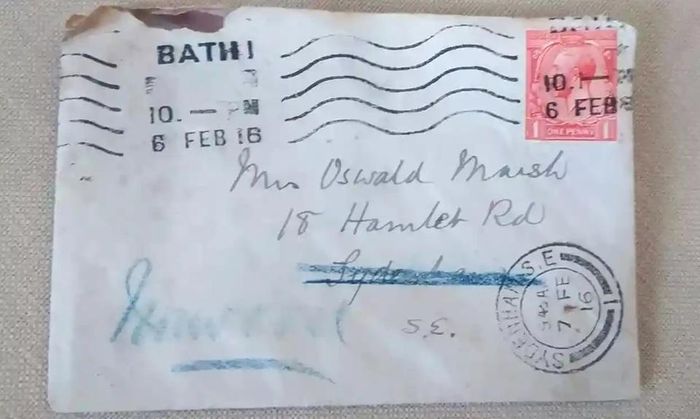 BATH
10. — PM
6 FEB 16
BATH
10.
6 FEB
ONE PENNY
1 1
Mrs Oswald Marsh
18 Hamlet Rd
Sydenham
S.E.
SYDENHAM S.E
7 FE
16